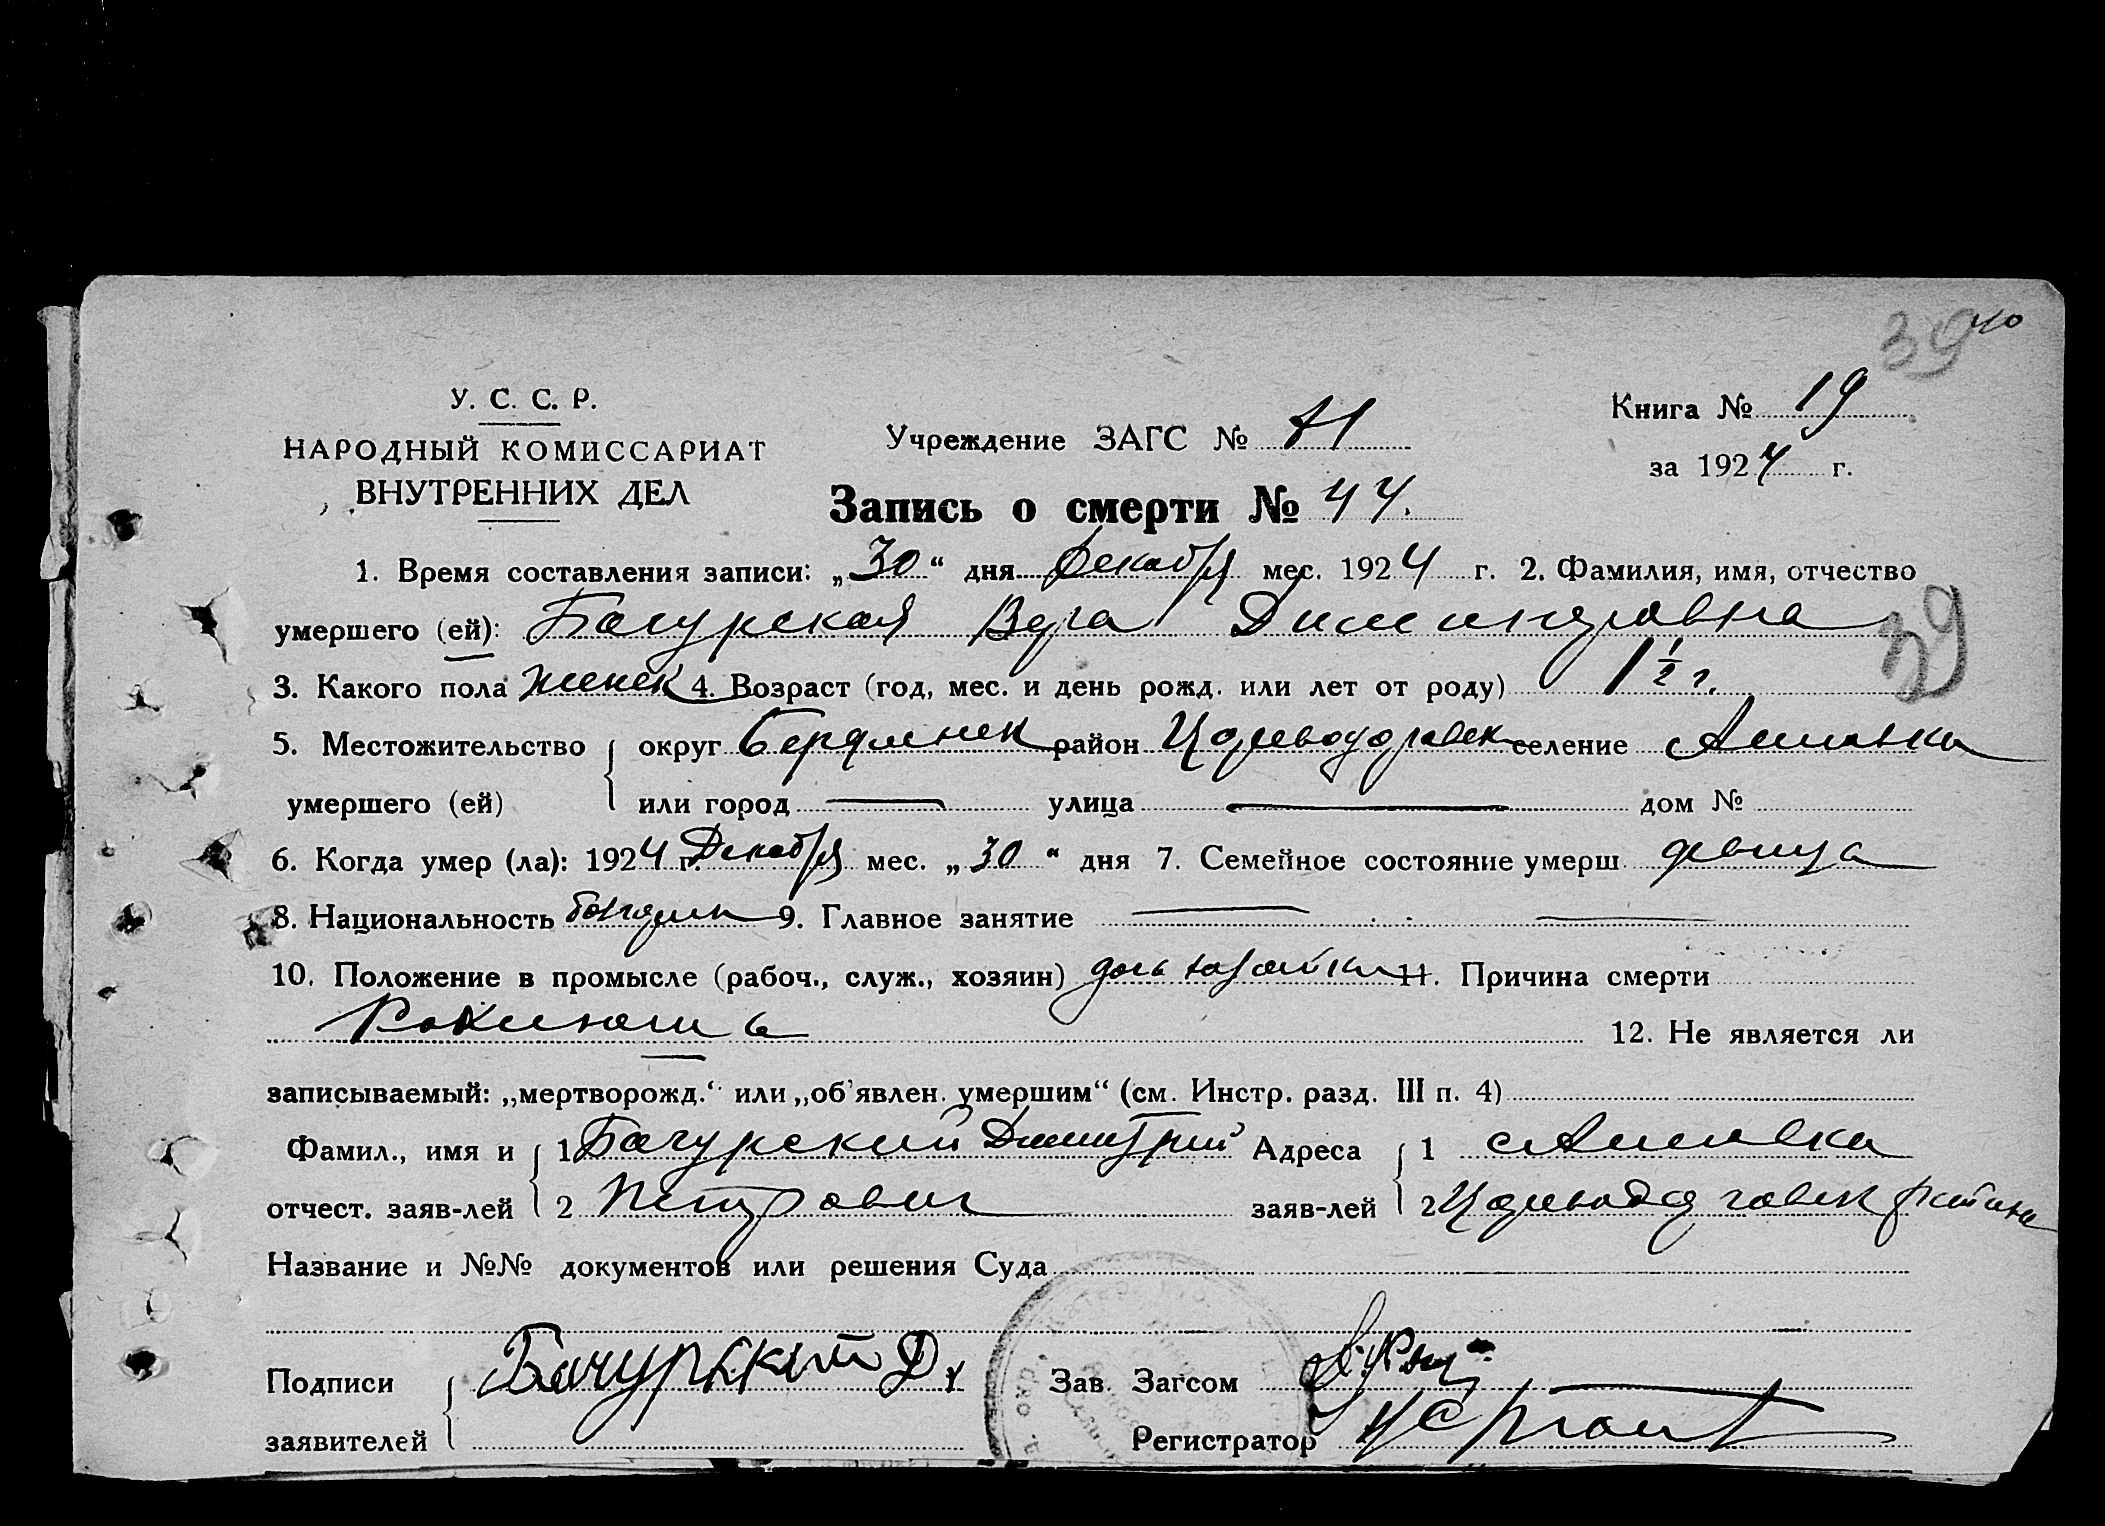 39 40
У. С. С. Р.
НАРОДНЫЙ КОМИССАРИАТ
ВНУТРЕННИХ ДЕЛ
Учреждение ЗАГС №
Книга № 19
за 1924 г.
Запись о смерти № 44.
1. Время составления записи: „30“ дня Декабря мес. 1924 г. 2. Фамилия, имя, отчество
умершего (ей): Бачурская Вера Димитровна
39
3. Какого пола женск 4. Возраст (год, мес. и день рожд. или лет от роду) 1 1/2 г.
5. Местожительство округ Бердянск район Цареводаровск селение
умершего (ей) или город — улица — дом №
6. Когда умер (ла): 1924 г. Декабря мес. „30“ дня 7. Семейное состояние умерш девица
8. Национальность болгарка 9. Главное занятие —
10. Положение в промысле (рабоч., служ., хозяин) дочь хозяйки 11. Причина смерти
12. Не является ли
записываемый: „мертворожд.“ или „об'явлен. умершим“ (см. Инстр. разд. III п. 4)
Фамил., имя и 1 Бачурский Димитрий Адреса 1
отчест. заяв-лей 2 Петрович заяв-лей 2 района
Название и №№ документов или решения Суда
Подписи Бачурский Д. Зав. Загсом
заявителей Регистратор